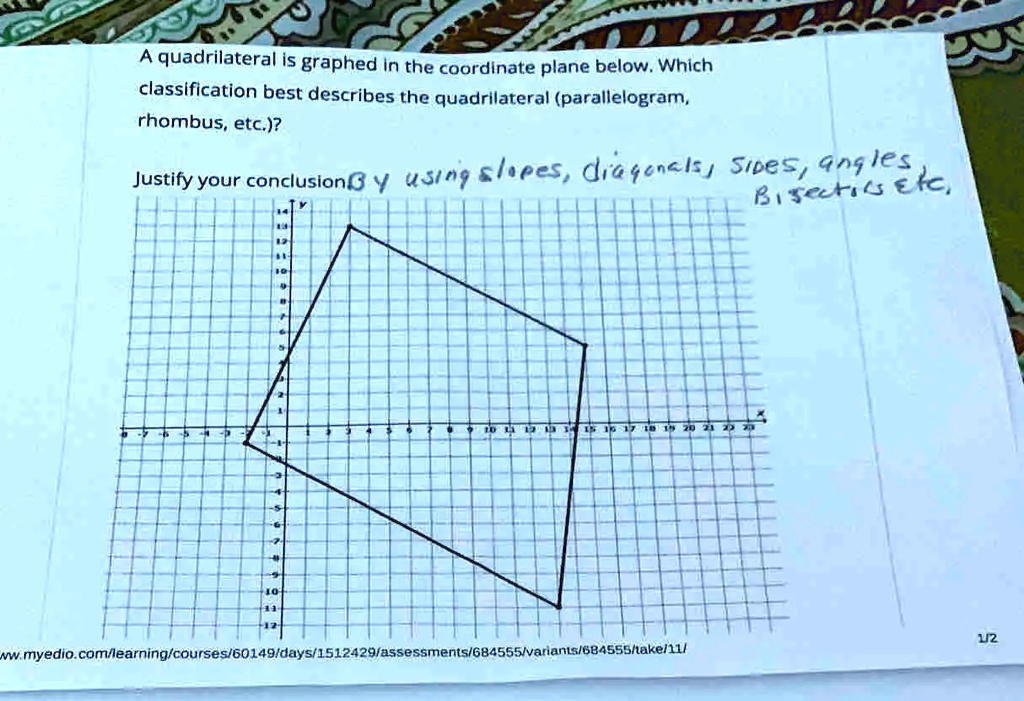 A quadrilateral is graphed in the coordinate plane below. Which
classification best describes the quadrilateral (parallelogram,
rhombus, etc.)?
Justify your conclusion By using slopes, diagonals, sides, angles,
Bisectics etc.
y
14
13
12
11
10
9
8
7
6
5
4
3
2
1
x
-8 -7 -6 -5 -4 -3 -2 -1 1 2 3 4 5 6 7 8 9 10 11 12 13 14 15 16 17 18 19 20 21 22 23
-1
-2
-3
-4
-5
-6
-7
-8
9
10
11
12
ww.myedio.com/learning/courses/60149/days/1512429/assessments/684555/variants/684555/take/11/
1/2